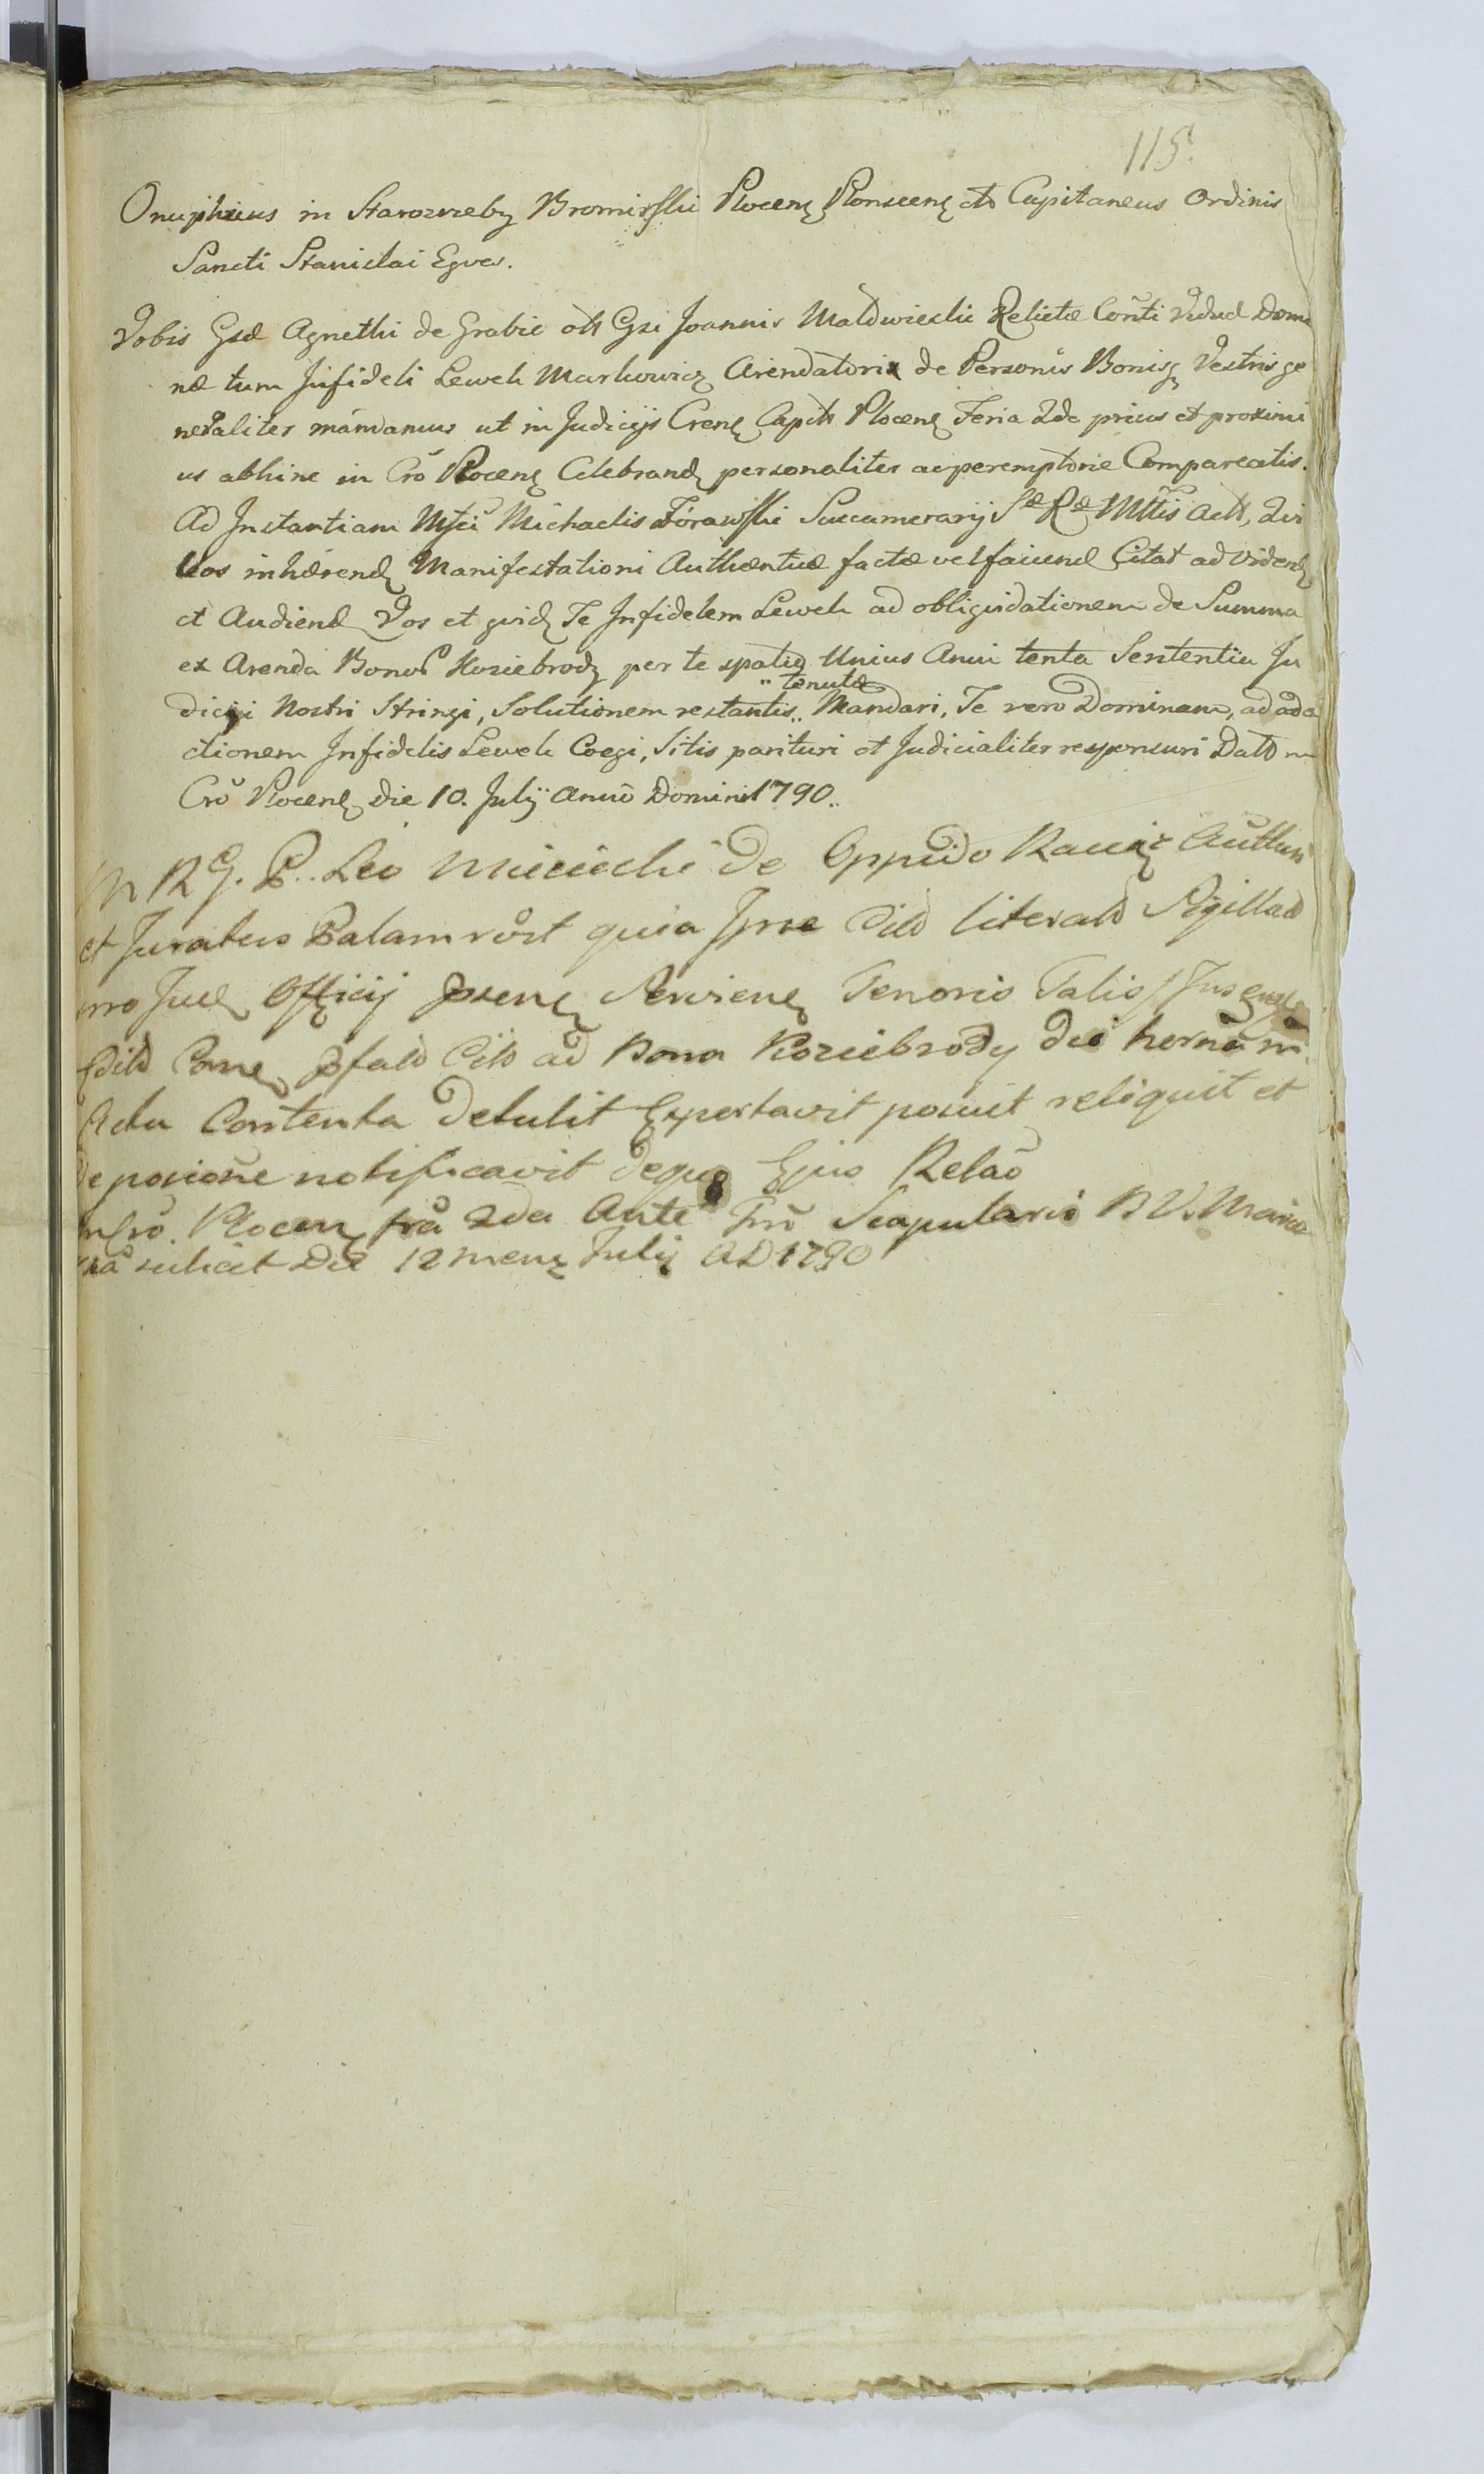 115.
Onuphrius in Starozreby Bromirski Plocens Plonscens etc Capitaneus Ordinis
Sancti Stanislai Eques.
Vobis Gsæ Agnethi de Grabie olt Gsi Joannis Maldwiecki Relictæ Conti Viduæ Domi
næ tum Infideli Lewek Markowicz Arendatori de Personis Bonisq Vestris ge
neraliter mandamus ut in Judicijs Crens Capits Plocens Feria 2da prius et proximi
us abhinc in Cro Plocens Celebrand personaliter ac peremptorie Compareatis.
Ad Instantiam Mfci Michaelis Zórawski Succamerarij Sæ Ræ Mttis Actt, Qui
Vos inhærend Manifestationi Authenticæ factæ vel faciend Citat ad vidend
et Audiend Vos et quid Te Infidelem Lewek ad obliquidationem de Summa
ex Arenda Bonor Koziebrod per te spatio Unius Anni tenta Sententia Ju
" tenutæ
dicij Nostri Stringi, Solutionem restantis " Mandari, Te vero Dominam, ad ada
ctionem Infidelis Lewek Coegi, Sitis parituri et Judicialiter responsuri Datt in
Cro Plocens die 10. Julij Anno Domini 1790..
M R G. P. Leo Miciecki de Oppido Raciąż Autthus
et Juratus Palam rost quia Ipse Citt literatt Sigillatt
pro Jud Officij psens Serviens Tenoris Talis
Citt ad Bona Koziebrody
Actu Contenta Detulit Exportavit posuit reliquit et
de posione notificavit dequo Ejus Relao
in Cro. Plocens fra 2da Ante Fm Scapularis B V. Mariæ
fra scilicet Die 12 mens Julij AD 1790